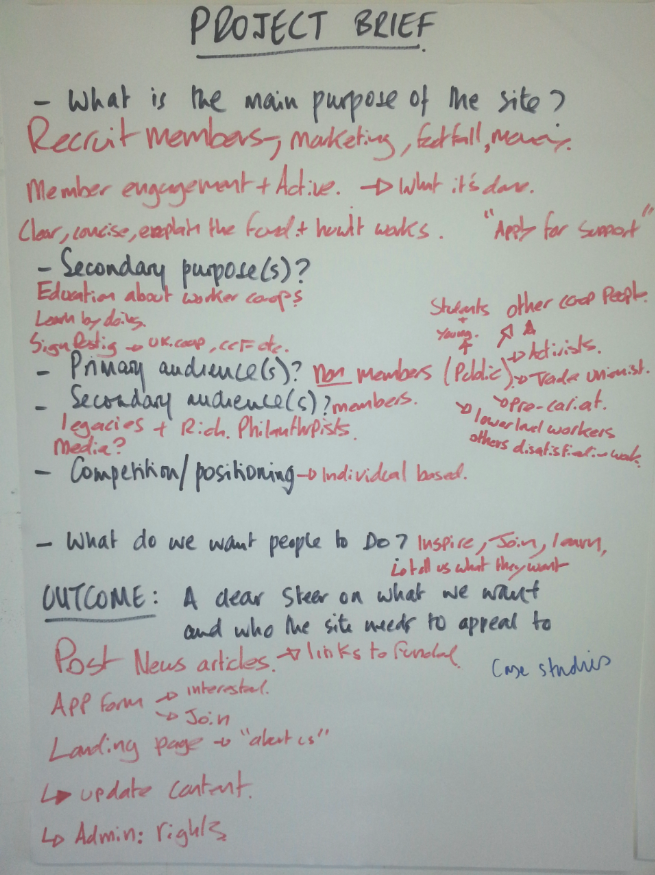 PROJECT BRIEF
- What is the main purpose of the site?
Recruit members, marketing, footfall, money.
Member engagement + Active. → What it's done.
Clear, concise, explain the fund + how it works. "Apply for support"
- Secondary purpose(s)?
Education about worker coops
Learn by doing.
Signposting → UK coop, CCF etc.
Students other coop people.
+
Young.
- Primary audience(s)? Non members (Public)
→ Activists.
→ Trade unionist.
→ pre-cariat.
→ lower level workers
others
- Secondary audience(s)? members.
legacies + Rich. Philanthropists.
Media?
- Competition/positioning → Individual based.
- What do we want people to Do? Inspire, Join, learn,
↳ tell us what they want
OUTCOME: A clear steer on what we want
and who the site needs to appeal to
Post News articles. → links to
Case studies
APP form → interested.
→ Join
Landing page → "about us"
↳ update content.
↳ Admin: rights.